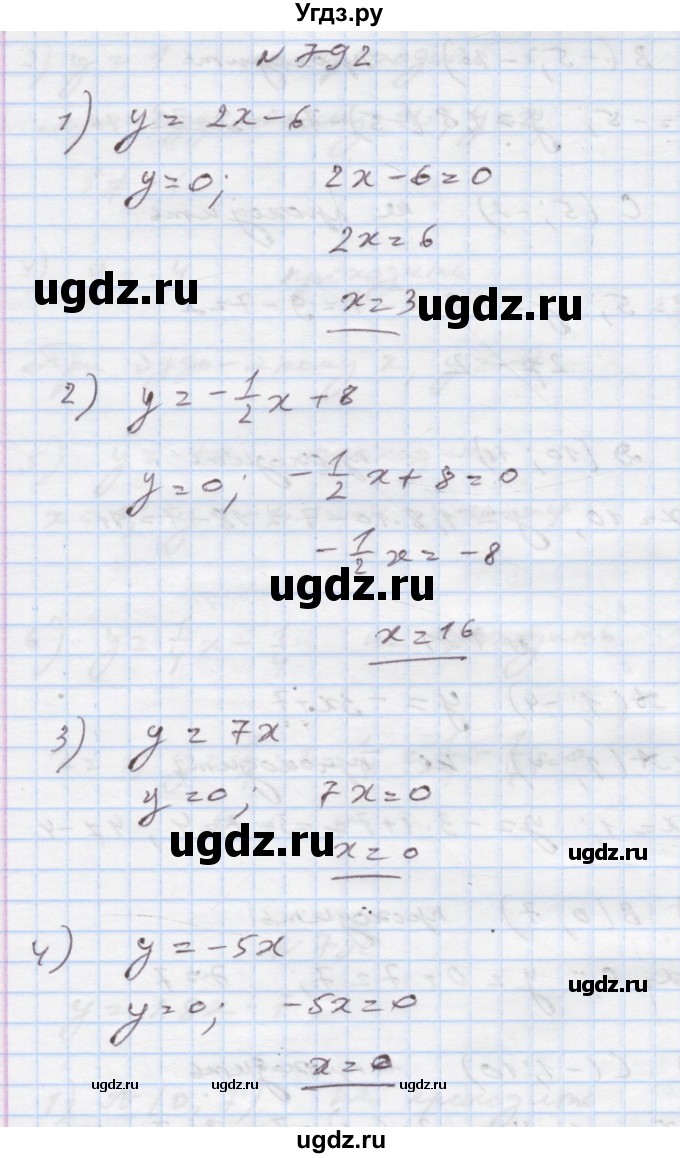 Угдз.ру
№ 792
1) y = 2x - 6
y = 0; 2x - 6 = 0
2x = 6
ugdz.ru x = 3 ugdz.ru
2) y = -1/2 x + 8
y = 0; -1/2 x + 8 = 0
-1/2 x = -8
ugdz.ru
x = 16
3) y = 7x
y = 0; 7x = 0
ugdz.ru x = 0 ugdz.ru
4) y = -5x
ugdz.ru
y = 0; -5x = 0
x = 0
ugdz.ru ugdz.ru ugdz.ru ugdz.ru
ugdz.ru